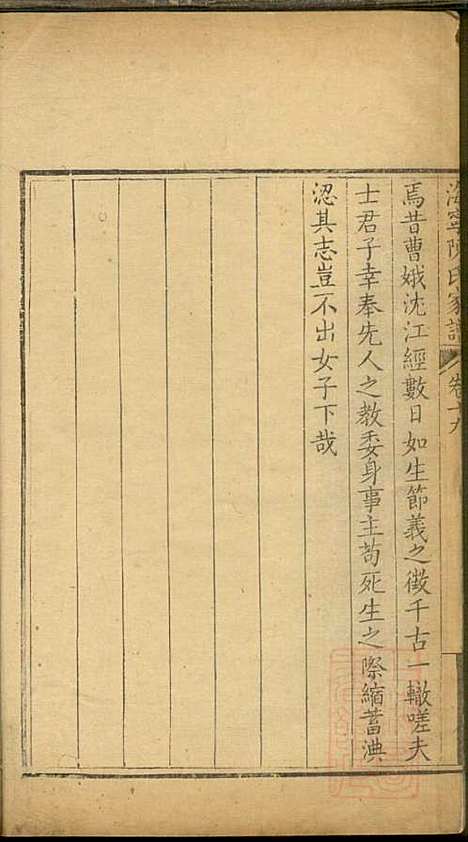 海寧陳氏家譜 卷十九
焉昔曹娥沈江經數日如生節義之徴千古一轍嗟夫
士君子幸奉先人之教委身事主苟死生之際縮蓄淟
涊其志豈不出女子下哉